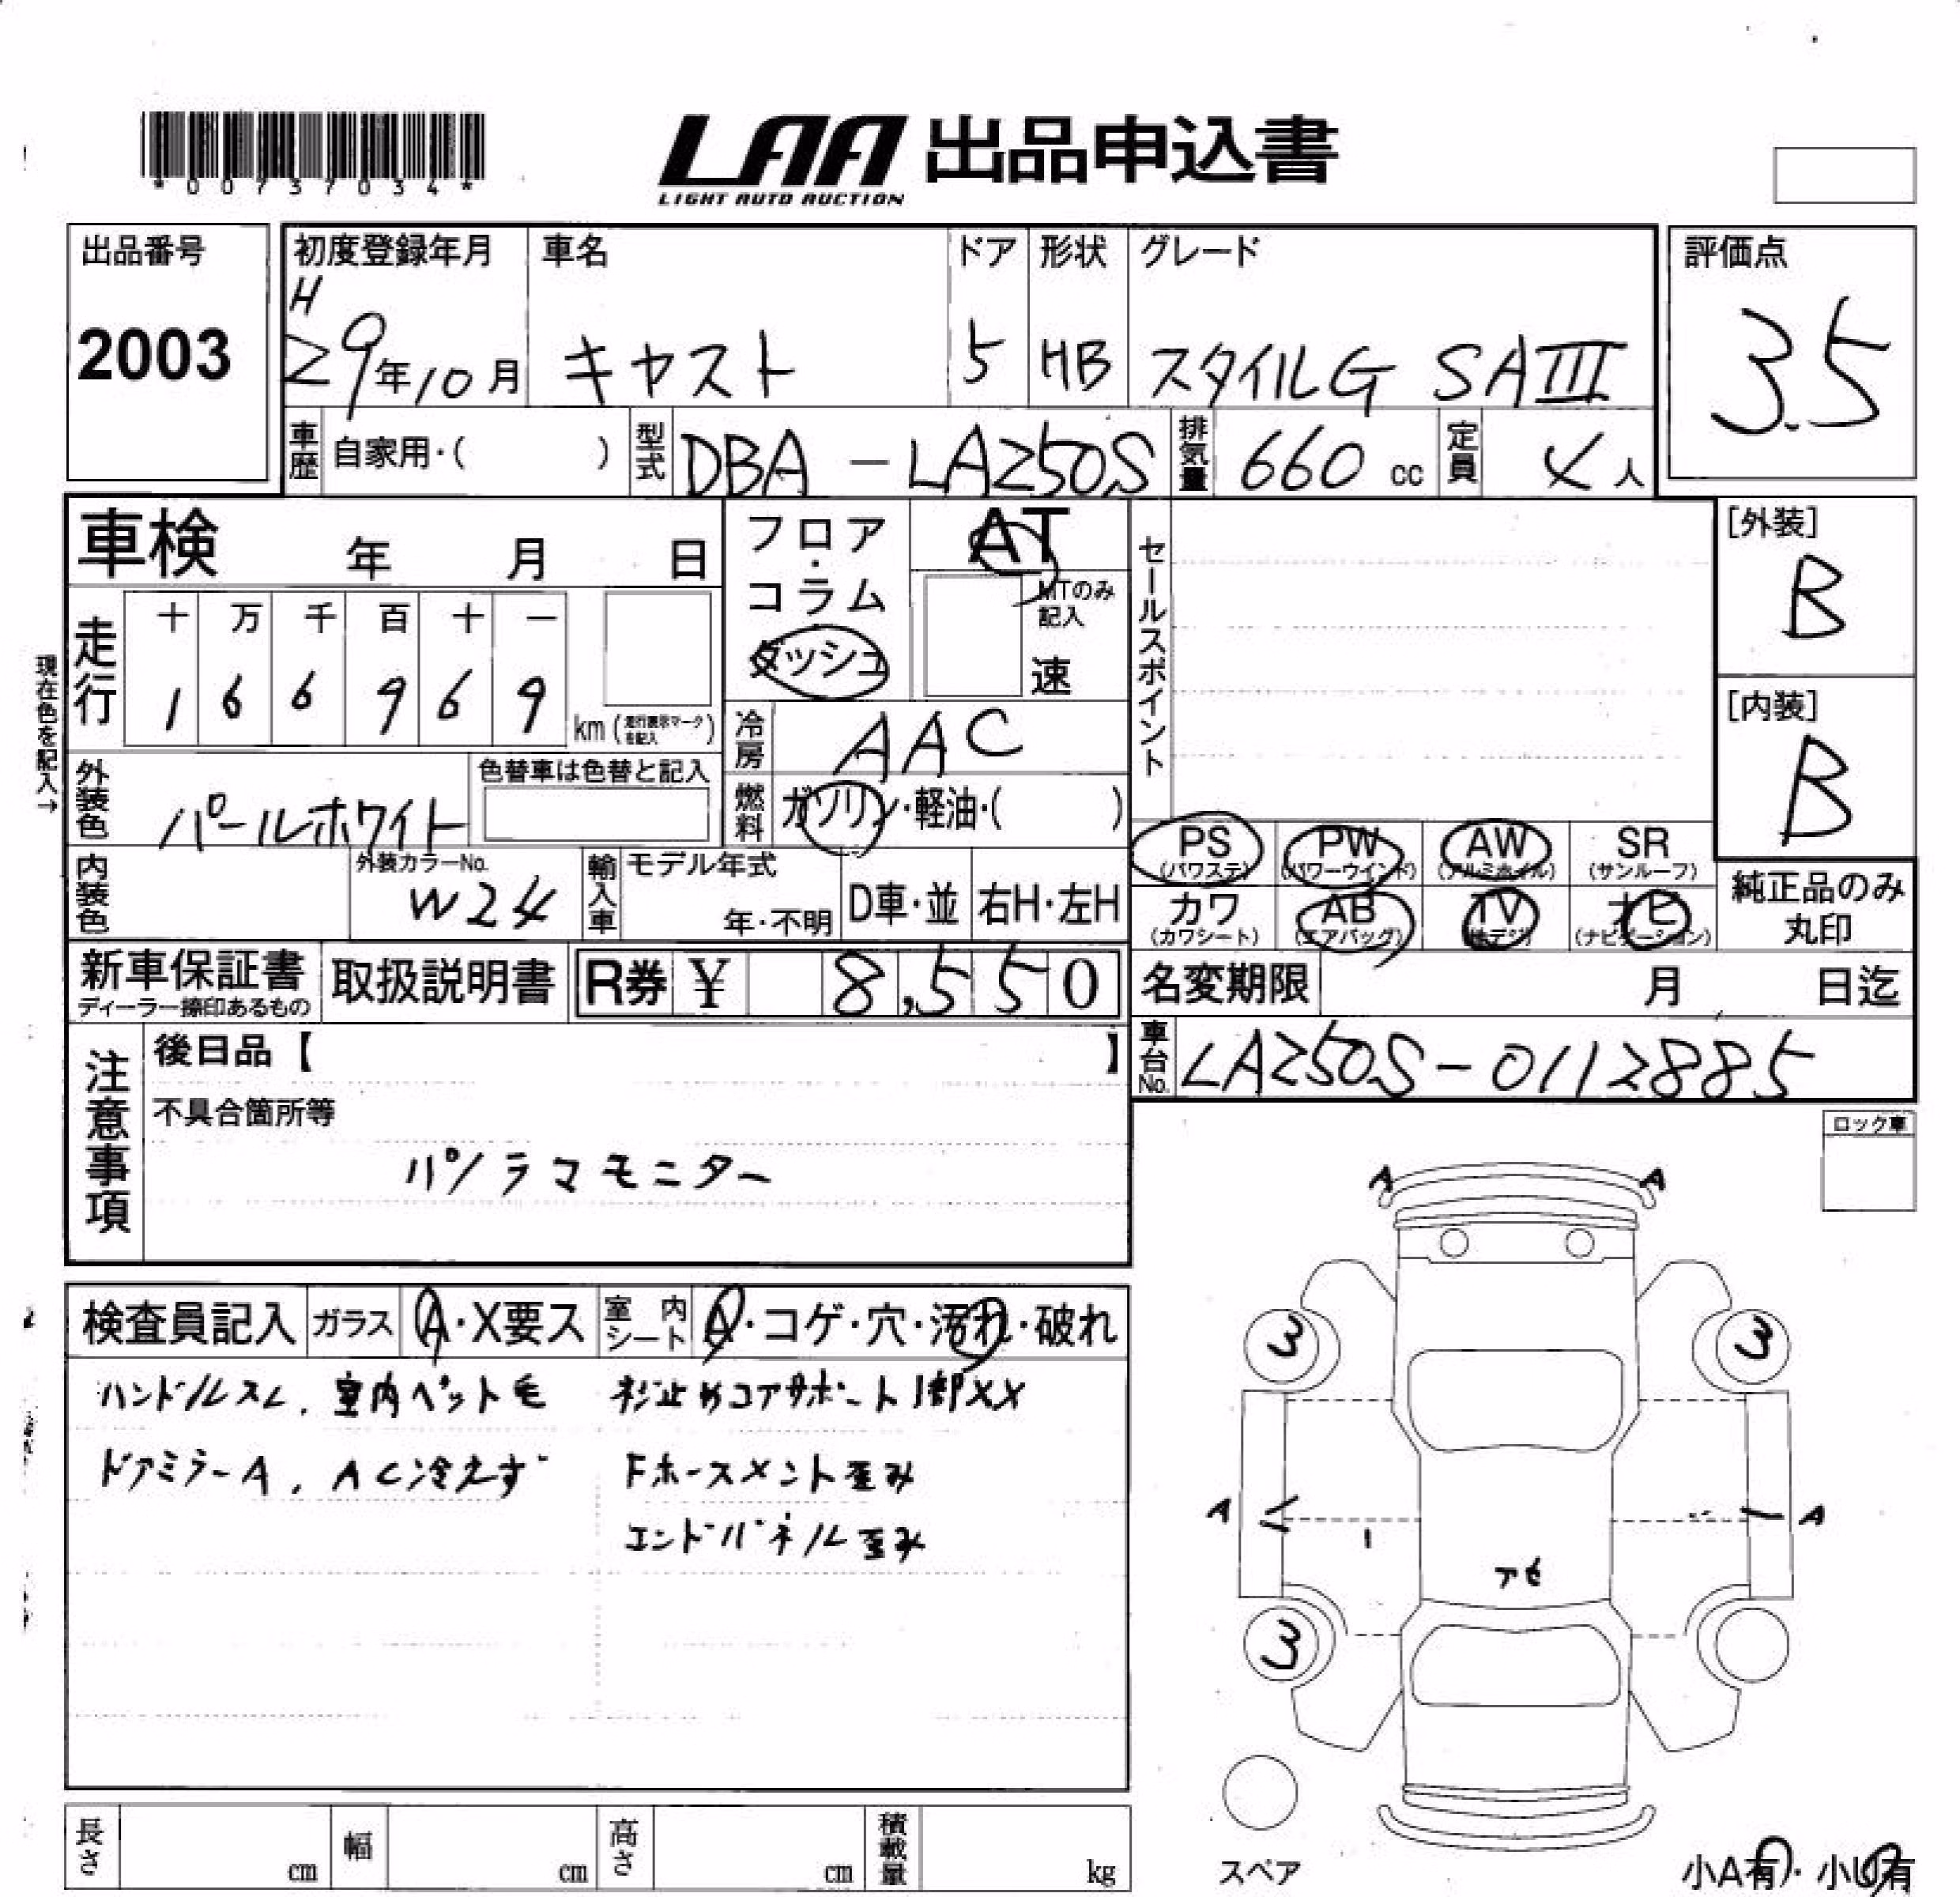 *00737034*
LAA 出品申込書
LIGHT AUTO AUCTION
出品番号
2003
初度登録年月
H
29年10月
車名
キャスト
ドア
5
形状
HB
グレード
スタイルG SAIII
評価点
3.5
車歴 自家用・( )
型式 DBA-LA250S
排気量 660 cc
定員 4人
車検 年 月 日
フロア・コラム
ダッシュ
AT
MTのみ記入
速
セールスポイント
[外装]
B
[内装]
B
現在色を記入→
走行
十 万 千 百 十 一
1 6 6 9 6 9
km (走行表示マークを記入)
冷房 AAC
燃料 ガソリン・軽油・( )
外装色 パールホワイト
色替車は色替と記入
内装色
外装カラーNo.
W24
輸入車
モデル年式
年・不明
D車・並
右H・左H
PS (パワステ)
PW (パワーウインド)
AW (アルミホイル)
SR (サンルーフ)
カワ (カワシート)
AB (エアバッグ)
TV (地デジ)
ナビ (ナビゲーション)
純正品のみ丸印
新車保証書
ディーラー捺印あるもの
取扱説明書
R券 ¥ 8,550
名変期限 月 日迄
車台No. LA250S-0112885
注意事項
後日品【 】
不具合箇所等
パノラマモニター
ロック車
検査員記入
ガラス A・X要ス
室内シート A・コゲ・穴・汚れ・破れ
ハンドルスレ、室内ペット毛
ドアミラーA、AC冷えず
杉止めコアサポート1部XX
Fホースメント歪み
エンドパネル歪み
A A
3 3
A A
アセ
3
スペア
小A有・小U有
長さ cm
幅 cm
高さ cm
積載量 kg